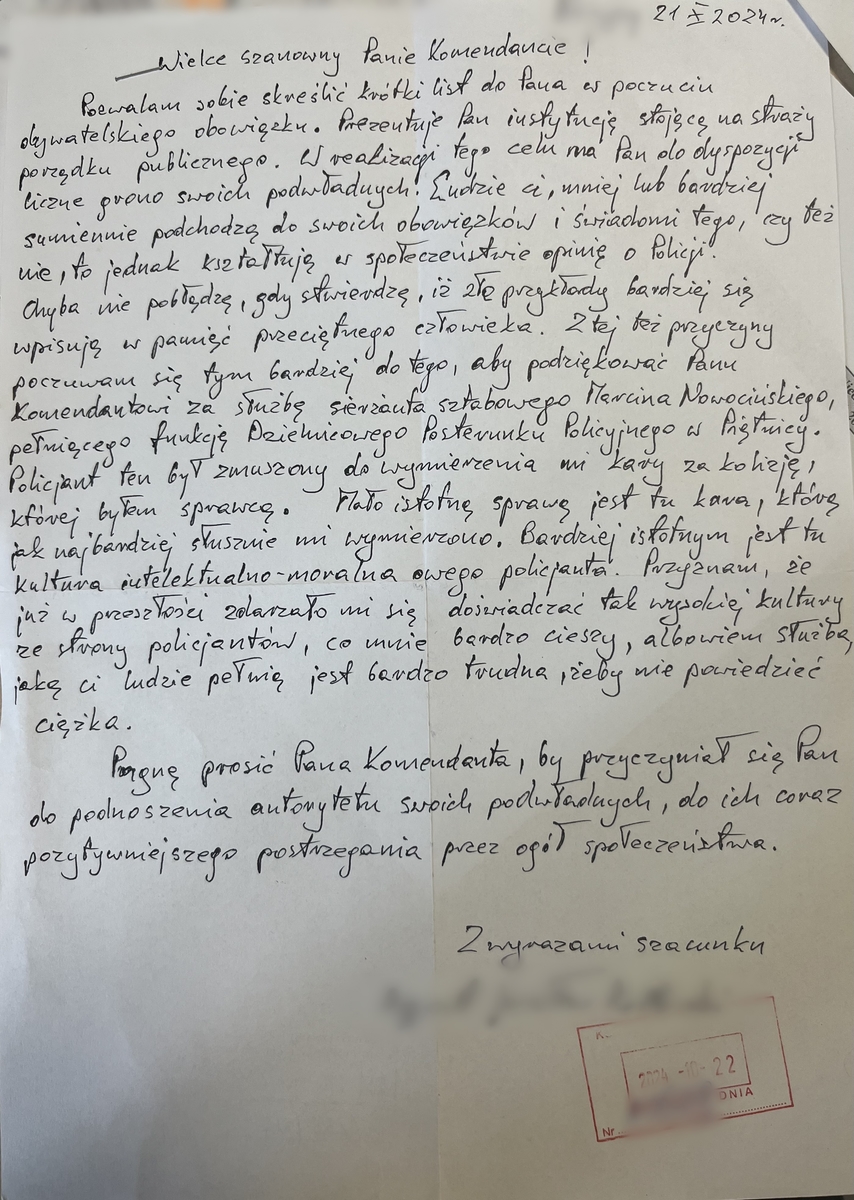 21 X 2024r.
Wielce szanowny Panie Komendancie!
Pozwalam sobie skreślić krótki list do Pana w poczuciu
obywatelskiego obowiązku. Prezentuje Pan instytucję stojącą na straży
porządku publicznego. W realizacji tego celu ma Pan do dyspozycji
liczne grono swoich podwładnych. Ludzie ci, mniej lub bardziej
sumiennie podchodzą do swoich obowiązków i świadomi tego, czy też
nie, to jednak kształtują w społeczeństwie opinię o Policji.
Chyba nie pobłądzę, gdy stwierdzę, iż złe przykłady bardziej się
wpisują w pamięć przeciętnego człowieka. Z tej też przyczyny
poczuwam się tym bardziej do tego, aby podziękować Panu
Komendantowi za służbę sierżanta sztabowego Marcina Nowocińskiego,
pełniącego funkcję Dzielnicowego Posterunku Policyjnego w Piątnicy.
Policjant ten był zmuszony do wymierzenia mi kary za kolizję,
której byłem sprawcą. Mało istotną sprawą jest tu kara, którą
jak najbardziej słusznie mi wymierzono. Bardziej istotnym jest tu
kultura intelektualno-moralna owego policjanta. Przyznam, że
już w przeszłości zdarzało mi się doświadczać tak wysokiej kultury
ze strony policjantów, co mnie bardzo cieszy, albowiem służba,
jaką ci ludzie pełnią jest bardzo trudna, żeby nie powiedzieć
ciężka.
Pragnę prosić Pana Komendanta, by przyczyniał się Pan
do podnoszenia autorytetu swoich podwładnych, do ich coraz
pozytywniejszego postrzegania przez ogół społeczeństwa.
Z wyrazami szacunku
2024 -10- 22
DNIA
Nr